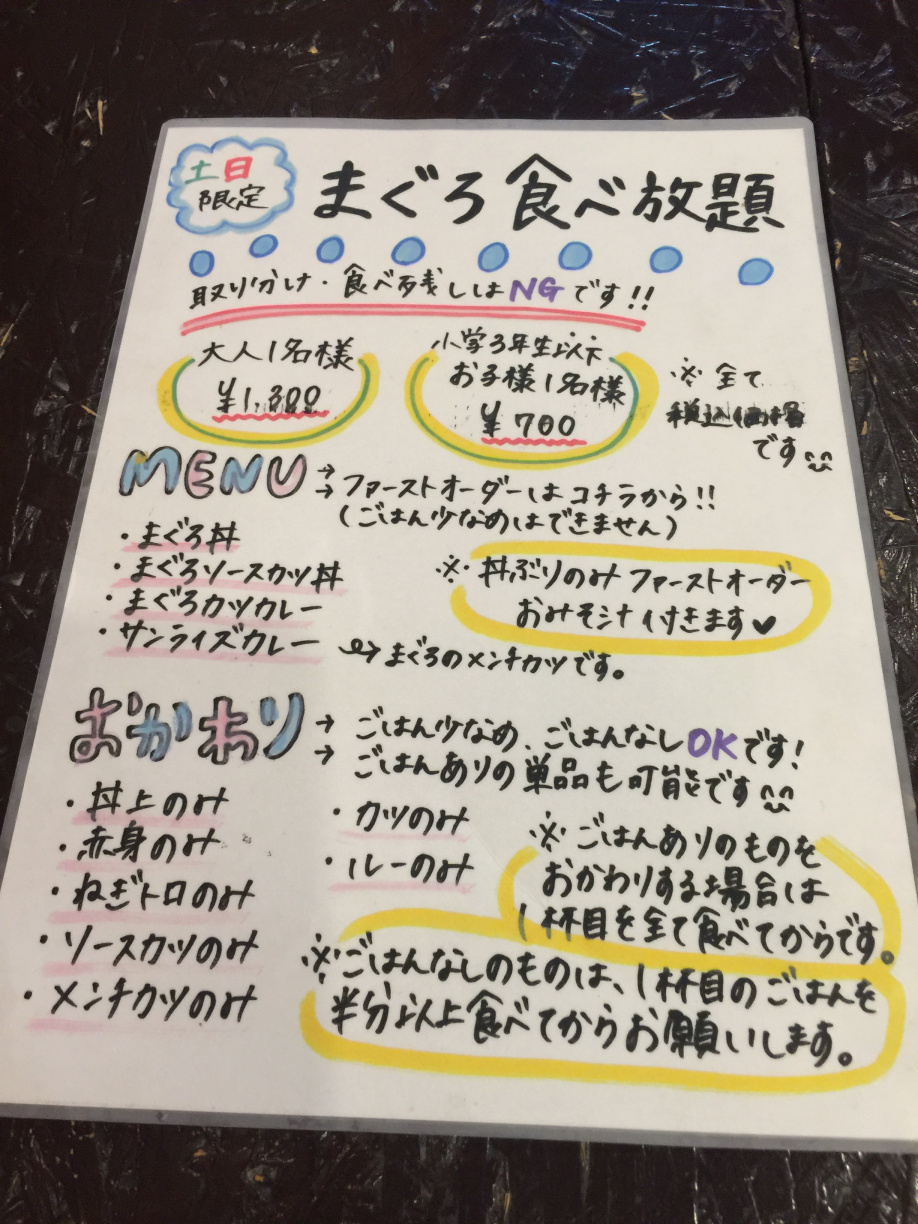 土日
限定
まぐろ食べ放題
取り分け・食べ残しはNGです!!
大人1名様
¥1,300
小学3年生以下
お子様1名様
¥700
※全て
税込価格
です
MENU
→ファーストオーダーはコチラから!!
(ごはん少なめはできません)
・まぐろ丼
・まぐろソースカツ丼
・まぐろカツカレー
・サンライズカレー
→まぐろのメンチカツです。
※丼ぶりのみファーストオーダー
おみそ汁付きます♥
おかわり
→ごはん少なめ、ごはんなしOKです!
→ごはんありの単品も可能です
・丼上のみ
・赤身のみ
・ねぎトロのみ
・ソースカツのみ
・メンチカツのみ
・カツのみ
・ルーのみ
※ごはんありのものを
おかわりする場合は
1杯目を全て食べてからです。
※ごはんなしのものは、1杯目のごはんを
半分以上食べてからお願いします。